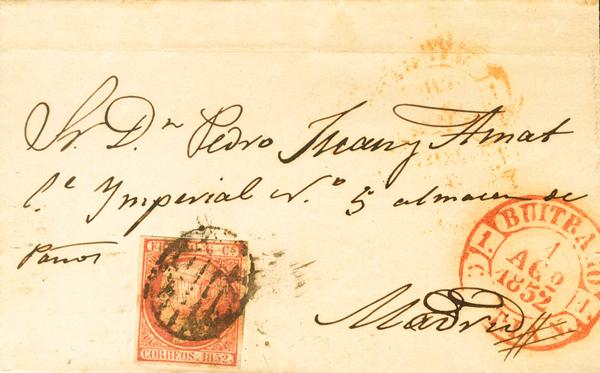 Sr. Dn. Pedro Juan y Amat
c.e Ymperial N.o 5 almacen de
Paños
Madrid
FR 6 CS
CORREOS. 1852.
BUITRAGO
1
AGO
1852